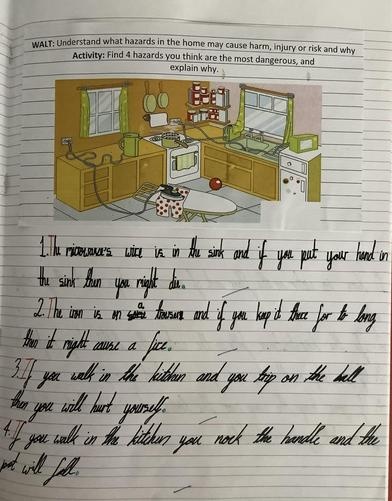 WALT: Understand what hazards in the home may cause harm, injury or risk and why
Activity: Find 4 hazards you think are the most dangerous, and
explain why.
1. The microwave's wire is in the sink and if you put your hand in
the sink then you might die.
2. The iron is on a trousers and if you keep it there for to long
then it might cause a fire.
3. If you walk in the kitchen and you trip on the ball
then you will hurt yourself.
4. If you walk in the kitchen you nock the handle and the
pot will fall.